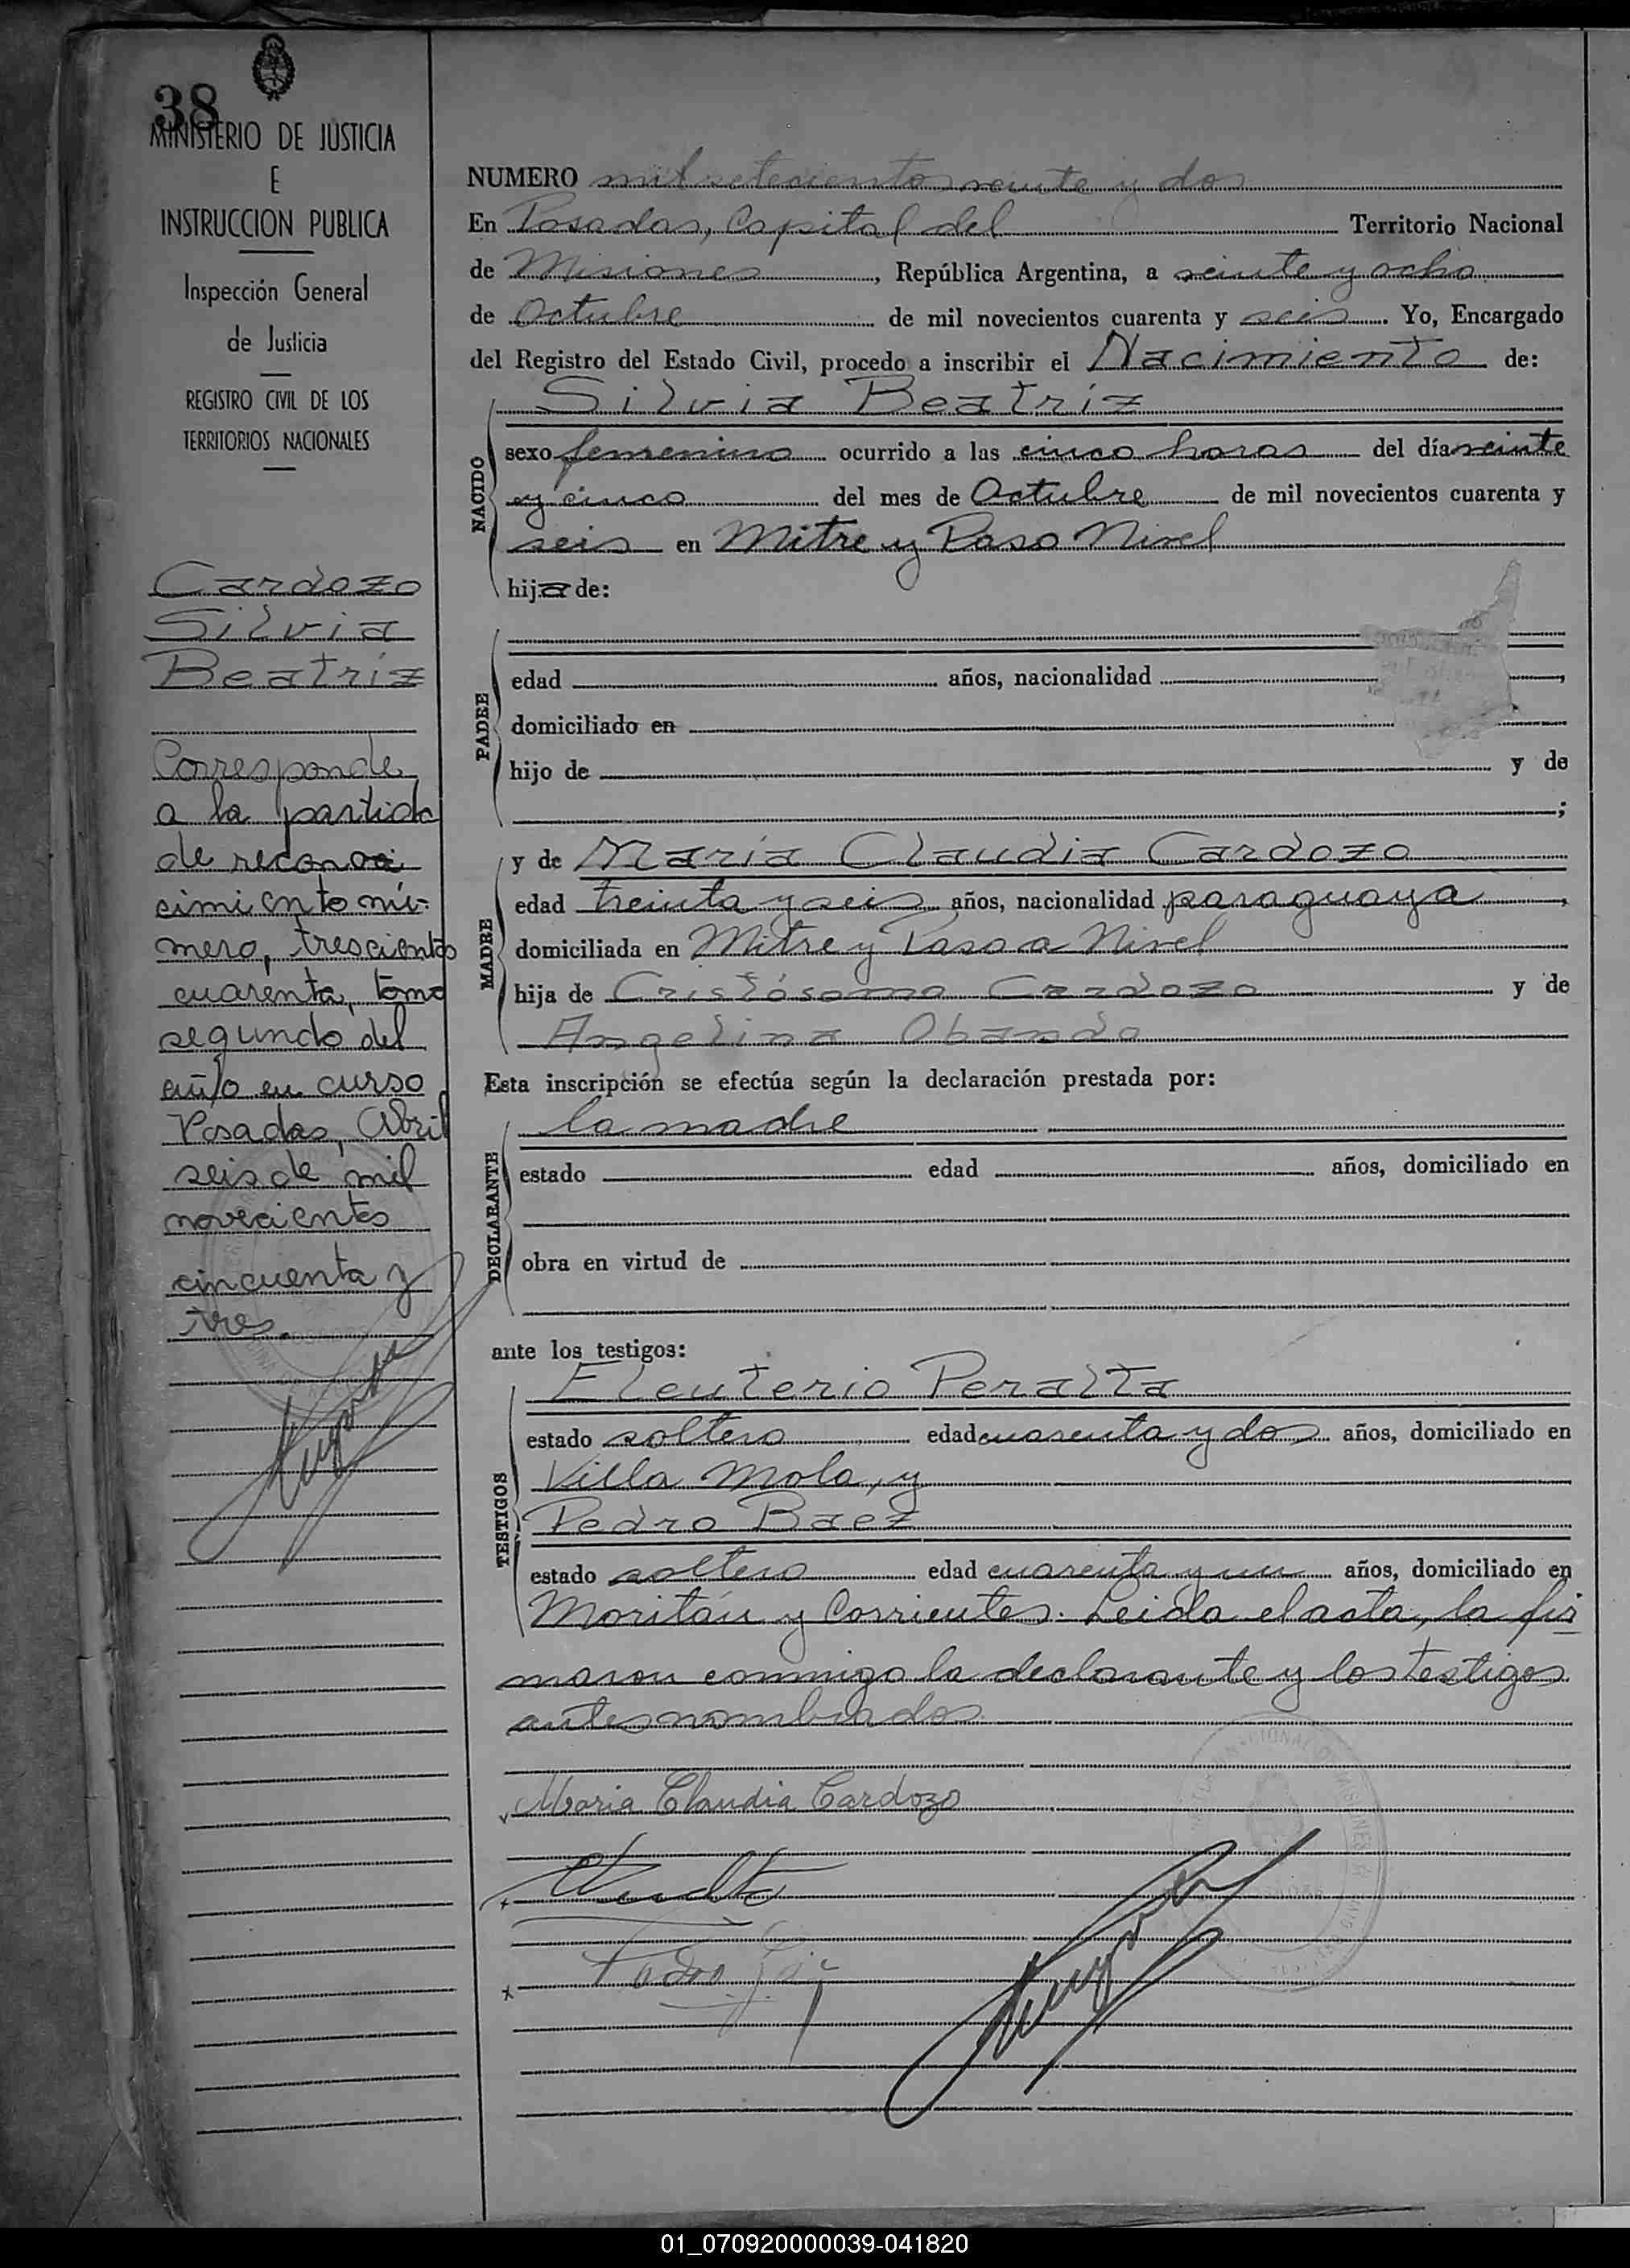 38
MINISTERIO DE JUSTICIA
E
INSTRUCCION PUBLICA
Inspección General
de Justicia
REGISTRO CIVIL DE LOS
TERRITORIOS NACIONALES
Cardozo
Silvia
Beatriz
Corresponde
a la partida
de reconoci
cimiento nú-
mero, trescientos
cuarenta, tomo
segundo del
año en curso
Posadas, Abril
seis de mil
novecientos
cincuenta y
tres.
NUMERO mil setecientos veinte y dos
En Posadas, Capital del Territorio Nacional
de Misiones, República Argentina, a veinte y ocho
de Octubre de mil novecientos cuarenta y seis. Yo, Encargado
del Registro del Estado Civil, procedo a inscribir el Nacimiento de:
Silvia Beatriz
NACIDO
sexo femenino ocurrido a las cinco horas del día veinte
y cinco del mes de Octubre de mil novecientos cuarenta y
seis en Mitre y Paso Nivel
hija de:
PADRE
edad años, nacionalidad ,
domiciliado en
hijo de y de
;
MADRE
y de María Claudia Cardozo
edad treinta y seis años, nacionalidad paraguaya,
domiciliada en Mitre y Paso a Nivel
hija de Cristósomo Cardozo y de
Angelina Obando
Esta inscripción se efectúa según la declaración prestada por:
DECLARANTE
la madre
estado edad años, domiciliado en
obra en virtud de
ante los testigos:
TESTIGOS
Eleuterio Peralta
estado soltero edad cuarenta y dos años, domiciliado en
Villa Mola, y
Pedro Baez
estado soltero edad cuarenta y un años, domiciliado en
Moritán y Corrientes. Leida el acta, la fir
maron conmigo la declarante y los testigos
antes nombrados.
Maria Claudia Cardozo
01_070920000039-041820